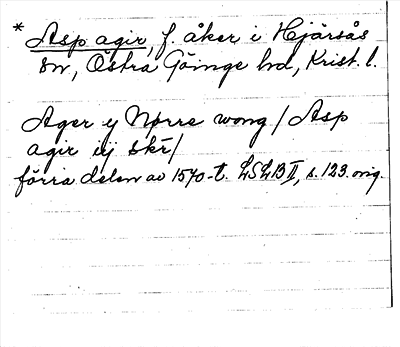 * Asp agir, f. åker i Hjärsås
sn, Östra Göinge hd, Krist. l.
Ager ij Nørre wong / Asp
agir iij skr/
förra delen av 1570-t. LSLB II, s. 123. orig.